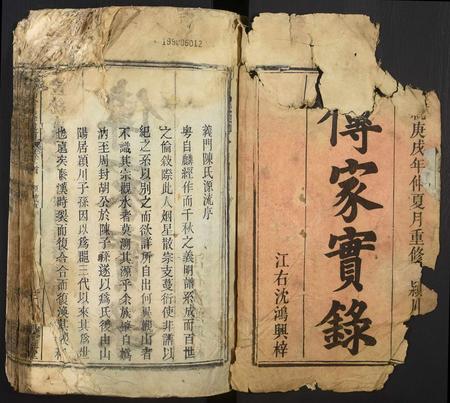 199006012
庚戌年仲夏月重修 潁川
傳家實錄
江右沈鴻興梓
義門陳氏源流序
粵自麟經作而千秋之義明譜系成而百世
之倫敘際此人烟星散宗支蔓衍使非譜以
紀之系以別之而欲詳所自出何異觀山者
不識其宗觀水者莫溯其源乎余族 自媯
汭至周封胡公於陳子孫遂以爲氏後由山
陽居潁川子孫因以爲郡三代以來其爲世
也遠矣秦漢時裂而復合合而復渙其